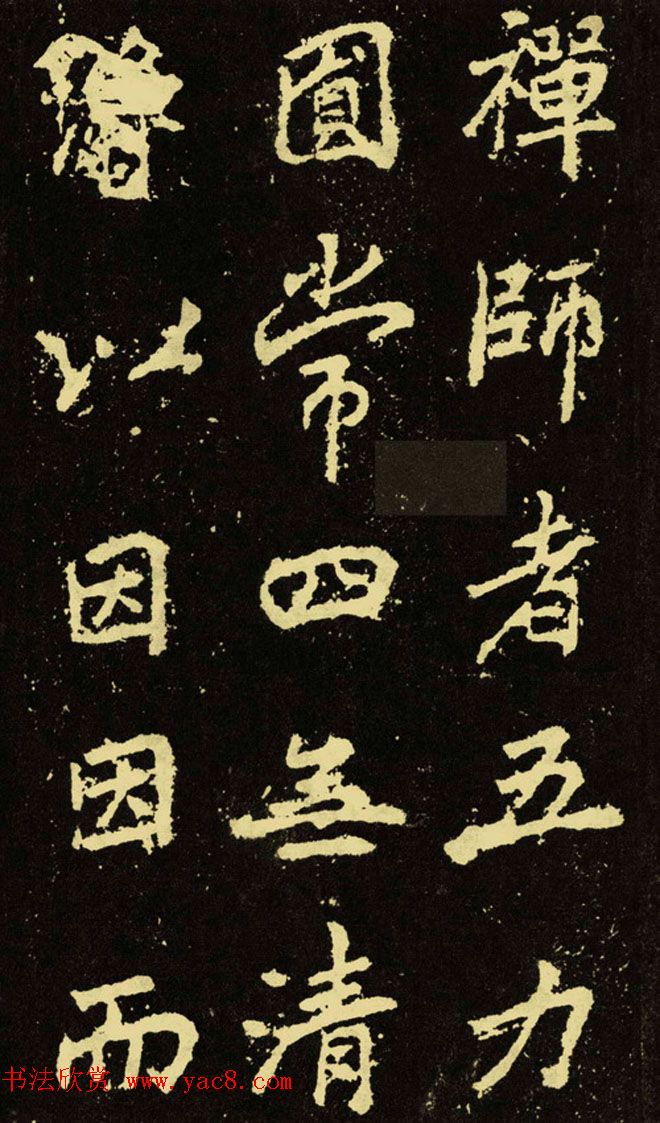 禪師者五力
圓常四無清
以因因而
书法欣赏 www.yac8.com